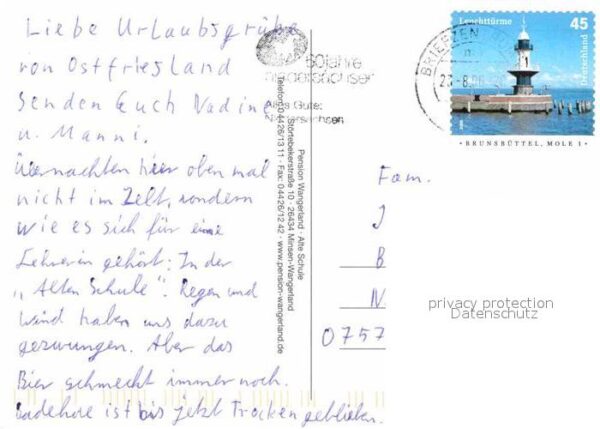 Liebe Urlaubsgrüße
von Ostfriesland
senden Euch Nadine
u. Manni.
Übernachten hier oben mal
nicht im Zelt, sondern
wie es sich für eine
Lehrerin gehört: In der
„Alten Schule". Regen und
Wind haben uns dazu
gezwungen. Aber das
Bier schmeckt immer noch.
Badehose ist bis jetzt Trocken geblieben.
60 Jahre
Alles Gute,
Niedersachsen
Pension Wangerland · Alte Schule
Störtebekerstraße 10 · 26434 Minsen-Wangerland
Telefon 04426/1311 · Fax: 04426/1242 · www.pension-wangerland.de
BRIEFZEN
Leuchttürme
45
Deutschland
BRUNSBÜTTEL, MOLE 1
Fam.
J
B
N
0757
privacy protection
Datenschutz